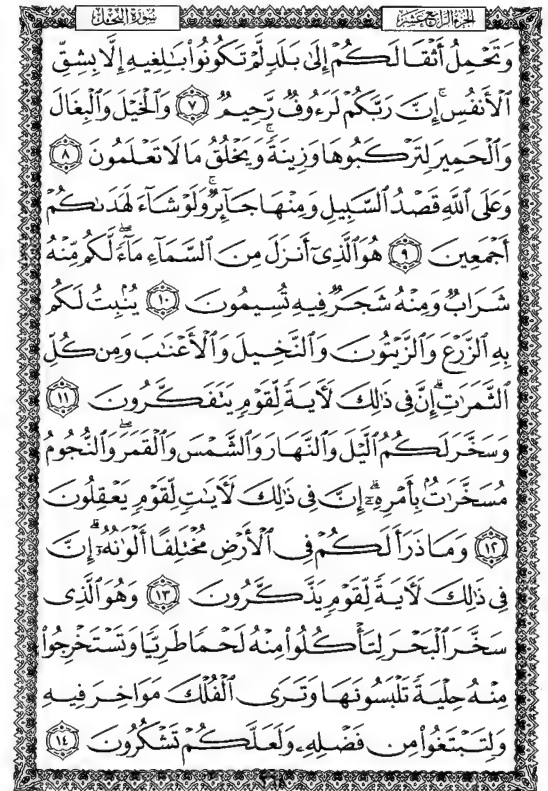 الجزء الرابع عشر
سورة النحل
وَتَحْمِلُ أَثْقَالَكُمْ إِلَىٰ بَلَدٍ لَّمْ تَكُونُوا۟ بَـٰلِغِيهِ إِلَّا بِشِقِّ
ٱلْأَنفُسِ ۚ إِنَّ رَبَّكُمْ لَرَءُوفٌ رَّحِيمٌ ۝٧ وَٱلْخَيْلَ وَٱلْبِغَالَ
وَٱلْحَمِيرَ لِتَرْكَبُوهَا وَزِينَةً ۚ وَيَخْلُقُ مَا لَا تَعْلَمُونَ ۝٨
وَعَلَى ٱللَّهِ قَصْدُ ٱلسَّبِيلِ وَمِنْهَا جَآئِرٌ ۚ وَلَوْ شَآءَ لَهَدَىٰكُمْ
أَجْمَعِينَ ۝٩ هُوَ ٱلَّذِىٓ أَنزَلَ مِنَ ٱلسَّمَآءِ مَآءً ۖ لَّكُم مِّنْهُ
شَرَابٌ وَمِنْهُ شَجَرٌ فِيهِ تُسِيمُونَ ۝١٠ يُنۢبِتُ لَكُم
بِهِ ٱلزَّرْعَ وَٱلزَّيْتُونَ وَٱلنَّخِيلَ وَٱلْأَعْنَـٰبَ وَمِن كُلِّ
ٱلثَّمَرَٰتِ ۗ إِنَّ فِى ذَٰلِكَ لَـَٔايَةً لِّقَوْمٍ يَتَفَكَّرُونَ ۝١١
وَسَخَّرَ لَكُمُ ٱلَّيْلَ وَٱلنَّهَارَ وَٱلشَّمْسَ وَٱلْقَمَرَ ۖ وَٱلنُّجُومُ
مُسَخَّرَٰتٌۢ بِأَمْرِهِۦٓ ۗ إِنَّ فِى ذَٰلِكَ لَـَٔايَـٰتٍ لِّقَوْمٍ يَعْقِلُونَ
۝١٢ وَمَا ذَرَأَ لَكُمْ فِى ٱلْأَرْضِ مُخْتَلِفًا أَلْوَٰنُهُۥٓ ۗ إِنَّ
فِى ذَٰلِكَ لَـَٔايَةً لِّقَوْمٍ يَذَّكَّرُونَ ۝١٣ وَهُوَ ٱلَّذِى
سَخَّرَ ٱلْبَحْرَ لِتَأْكُلُوا۟ مِنْهُ لَحْمًا طَرِيًّا وَتَسْتَخْرِجُوا۟
مِنْهُ حِلْيَةً تَلْبَسُونَهَا وَتَرَى ٱلْفُلْكَ مَوَاخِرَ فِيهِ
وَلِتَبْتَغُوا۟ مِن فَضْلِهِۦ وَلَعَلَّكُمْ تَشْكُرُونَ ۝١٤